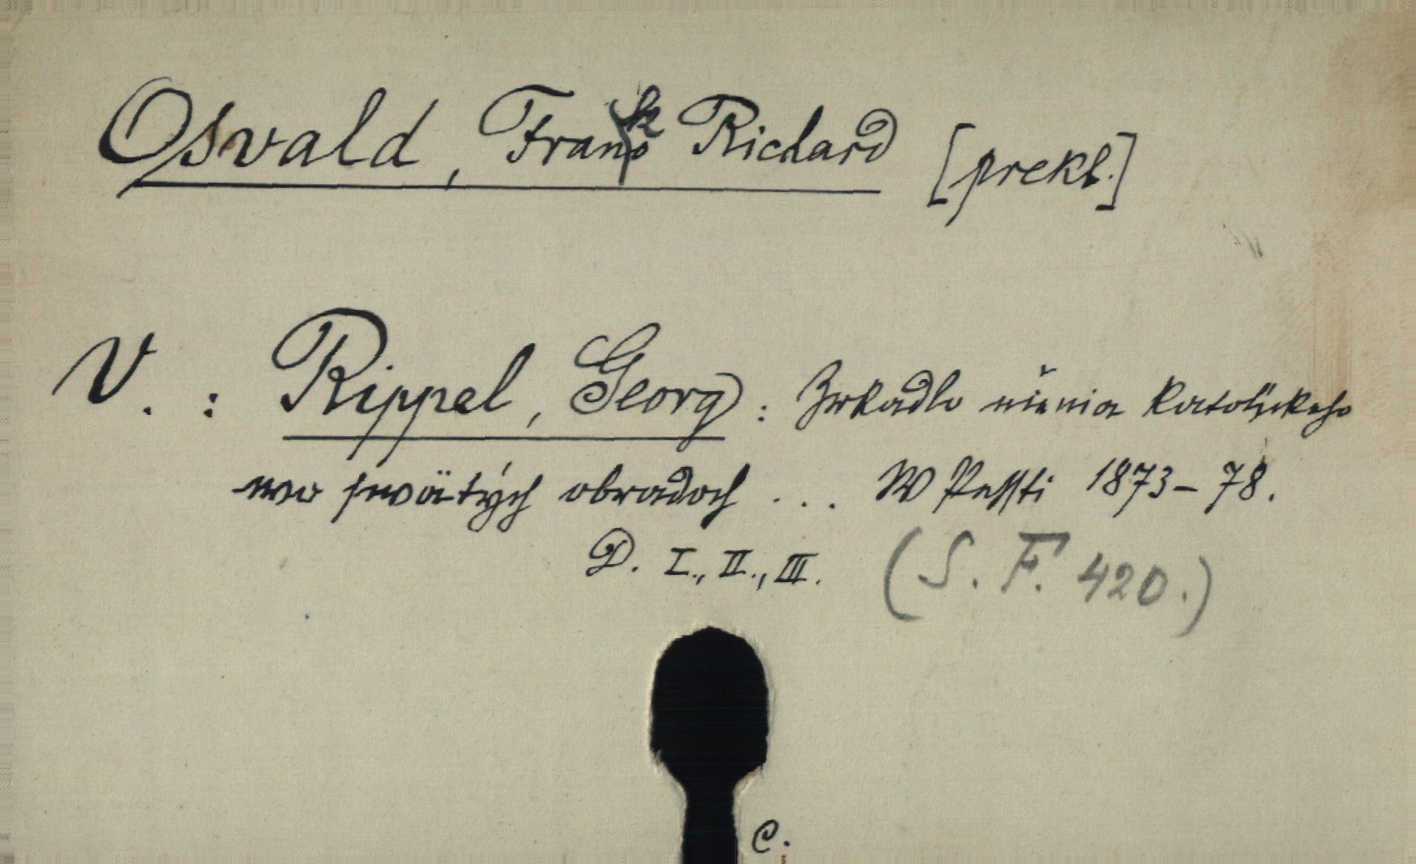 Osvald, Frank Richard [prekl.]
V. : Rippel, Georg : Zrkadlo učenia katolíckeho
wo swätých obradoch ... W Pessti 1873-78.
D. I., II., III. (S. F. 420.)
C.